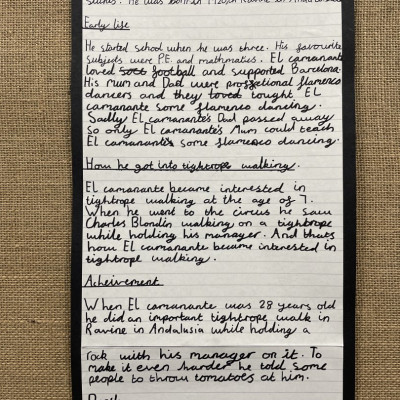 He was born in 1920, in Ravine in Andalusia
Early life
He started school when he was three. His favourite
subjects were P.E. and mathmatics. El camanante
loved football and supported Barcelona.
His mum and Dad were prosfectional flamenco
dancers and they loved tought El
camanante some flamenco dancing.
Sadly El camanante's Dad passed away
so only El camanante's Mum could teach
El camanante's some flamenco dancing.
How he got into tightrope walking.
El camanante became interested in
tightrope walking at the age of 7.
When he went to the circus he saw
Charles Blondin walking on a tightrope
while holding his manager. And thats
how El camanante became interested in
tightrope walking.
Acheivement
When El camanante was 28 years old
he did an important tightrope walk in
Ravine in Andalusia while holding a
rock with his manager on it. To
make it even harder he told some
people to throw tomatoes at him.